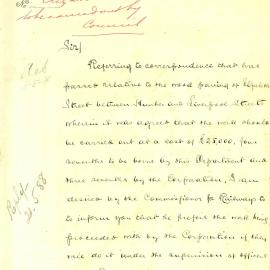 No
Council
Sir/
Referring to correspondence that has
passed relative to the wood paving of Elizabeth
Street between Hunter and Liverpool Streets
wherein it was agreed that the work should
be carried out at a cost of £25,000, four
sevenths to be borne by this Department and
three sevenths by the Corporation, I am
desired by the Commissioner for Railways to
to inform you that he prefers the work being
proceeded with by the Corporation if they
will do it under the supervision of officers